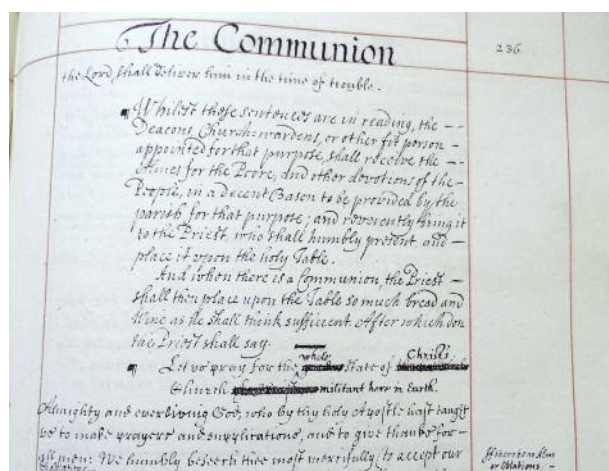 The Communion
236
the Lord shall deliver him in the time of trouble.
¶ Whilest these sentences are in reading, the --
Deacons, Churchwardens, or other fit person -
appointed for that purpose, shall receive the --
Almes for the Poore, and other devotions of the -
People, in a decent Bason to be provided by the
parish for that purpose; and reverently bring it
to the Priest, who shall humbly present and -
place it upon the holy Table.
And when there is a Communion, the Priest -
shall then place upon the Table so much bread and
Wine as he shall think sufficient After which don
the Priest shall say.
whole Christ's
¶ Let us pray for the state of
Church militant here in Earth.
Almighty and everliving God, who by thy holy Apostle hast taught
us to make prayers and supplications, and to give thanks for -
all men: We humbly beseech thee most mercifully to accept our
If there be no Alms
or Oblations -